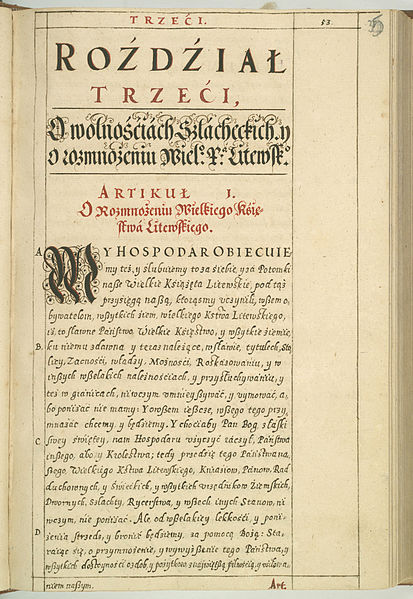 TRZEĆI.
53.
ROŹDŹIAŁ
TRZEĆI,
O wolnośćiach Szlacheckich, y
o rozmnożeniu Wiel: X.ª Litewsk:º
ARTIKUŁ I.
O Rozmnożeniu Wielkiego Xię-
stwá Litewskiego.
A. MY HOSPODAR OBIECUIE
my też, y slubuiemy to zá siebie, y zá Potomki
náße Wielkie Xiążętá Litewskie, pod tąż
przysięgą náßą, ktorąsmy vczynili, wßem o,
bywátelom, wßytkich źiem, wielkiego Xstwá Litewskiego,
iż, to sławne Páństwo, Wielkie Xięstwo, y wßytkie źiemie,
B. ku niemu zdawná y teraz należące, w sławie, tytulech, Sto
licy, Zacnośći, władzy, Możnośći, Roskázowániu, y w
inßych wßelákich należnośćiách, y przysłucháwániu, y
też w gránicách, ni w czym vmnieyßywáć, y vymowáć, á,
bo poniżáć nie mamy: Y owßem ießcze, wßego tego przy,
mnażáć chcemy y będźiemy. Y choćiaby Pan Bog, z łáski
C. swey świętey, nam Hospodaru vżyczyć raczył, Páństwá
inßego, álbo y Krolestwá; tedy przedśię tego Páństwá ná,
ßego, Wielkiego Xstwá Litewskiego, Kniáźiow, Pánow, Rad
duchownych, y Swieckich, y wßytkich vrzędnikow Ziemskich,
Dwornych, Szláchty, Rycerstwá, y wßech inych Stanow, ni
w czym, nie poniżáć. Ale od wßelákiey lekkośći, y poni-
D. żenia strzedz, y bronić będźiemy, zá pomocą Bożą: Stá-
ráiąc się, o przymnożenie, y wywyżßenie tego Páństwá, y
wßytkich dostoynośći ozdob, y pożytkow
niem náßym. Art.